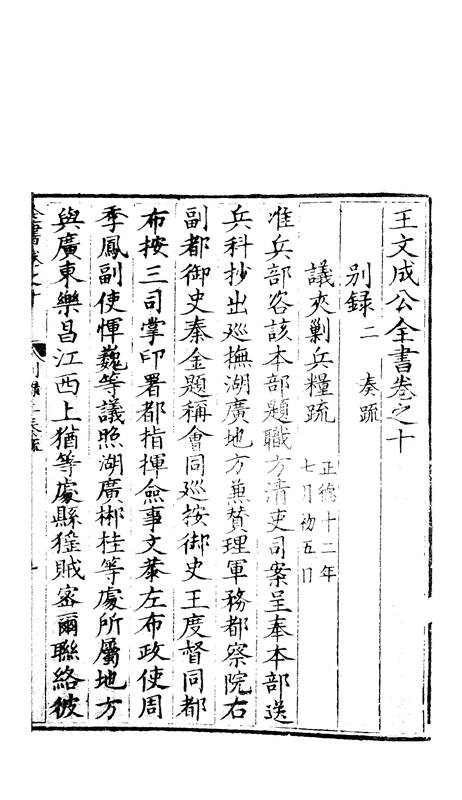 王文成公全書卷之十
別録二 奏疏
議夾剿兵糧疏 正德十二年
七月初五日
准兵部咨該本部題職方清吏司案呈奉本部送
兵科抄出巡撫湖廣地方兼贊理軍務都察院右
副都御史秦金題稱會同巡按御史王度督同都
布按三司掌印署都指揮僉事文恭左布政使周
季鳳副使惲巍等議照湖廣郴桂等處所屬地方
與廣東樂昌江西上猶等處縣猺賊密爾聯絡彼